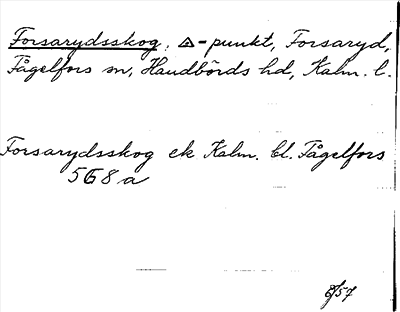 Forsarydsskog. △-punkt, Forsaryd,
Fågelfors sn, Handbörds hd, Kalm. l.
Forsarydsskog ek Kalm. bl. Fågelfors
568 a